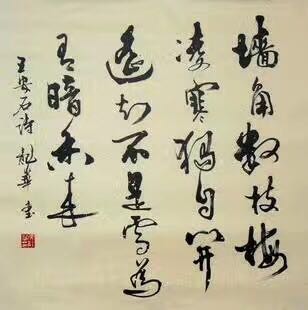 墙角数枝梅
凌寒独自开
遥知不是雪为
有暗香来
王安石诗 龙华书